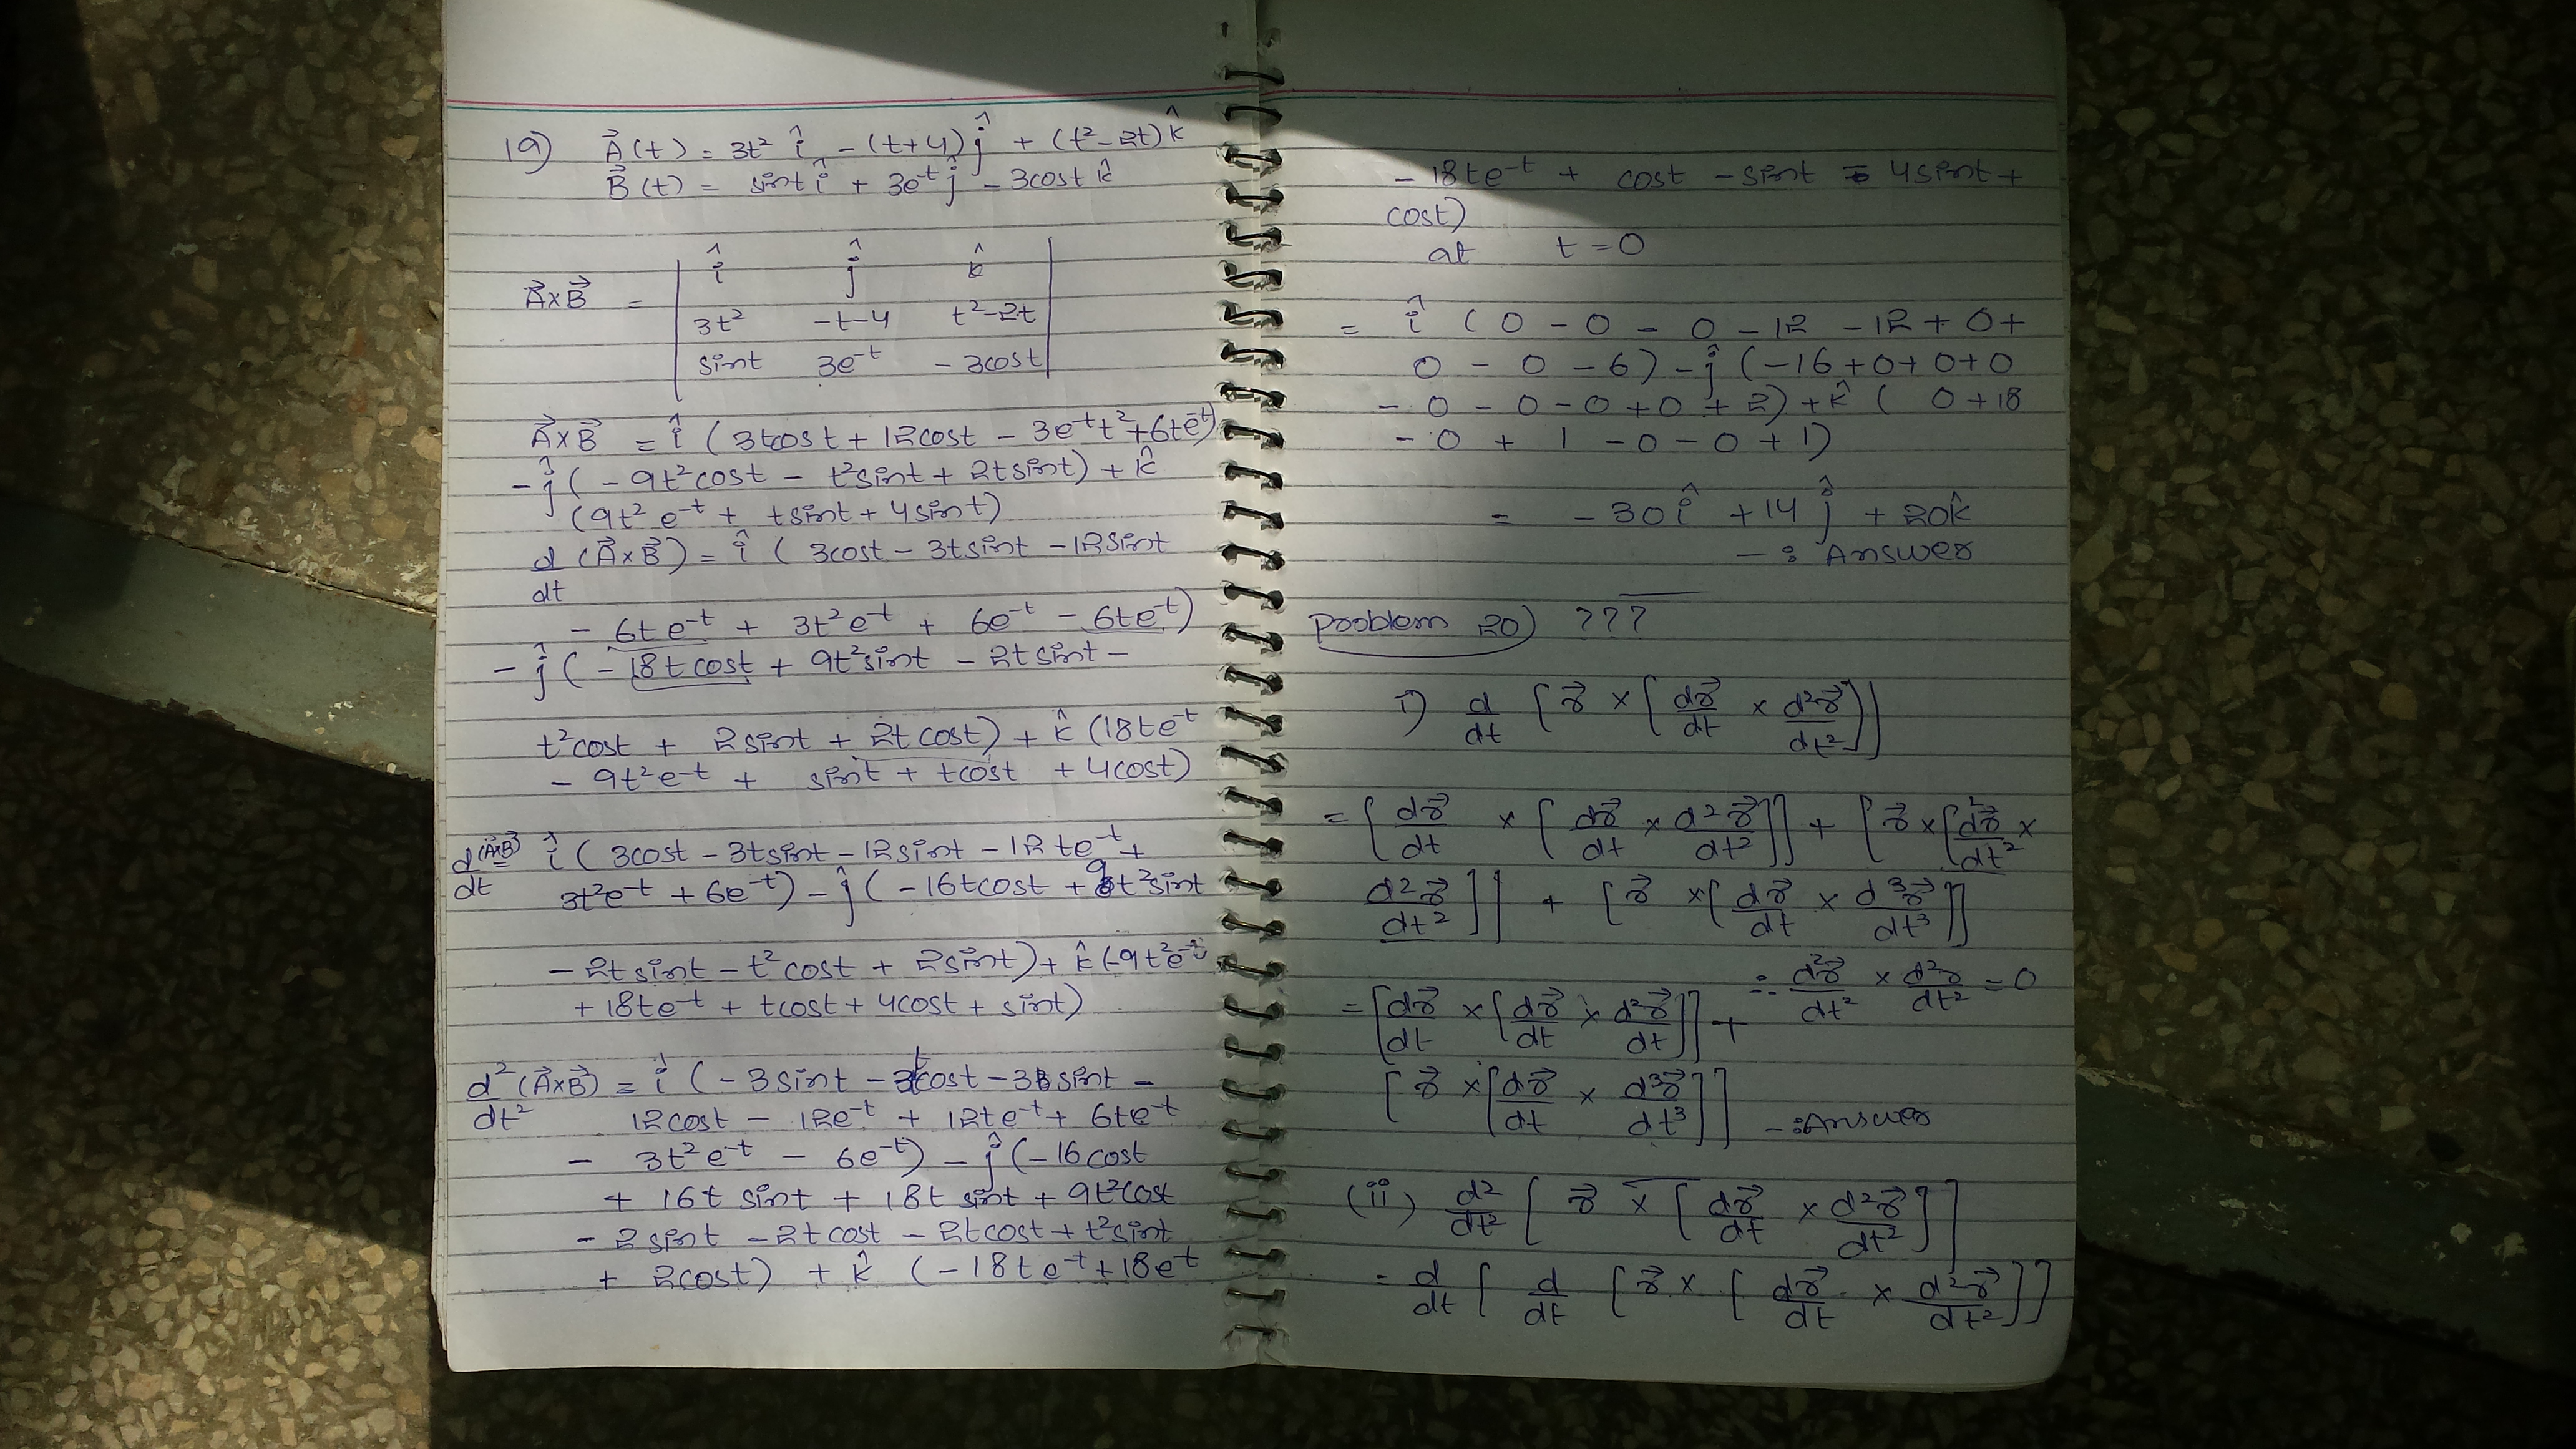 19) A⃗(t) = 3t² î - (t+4) ĵ + (t²-2t) k̂
B⃗(t) = sint î + 3e⁻ᵗ ĵ - 3cost k̂
î ĵ k̂
A⃗×B⃗ =
3t² -t-4 t²-2t
sint 3e⁻ᵗ - 3cost
A⃗×B⃗ = î (3tcost + 12cost - 3e⁻ᵗt² + 6te⁻ᵗ)
- ĵ (- 9t²cost - t²sint + 2tsint) + k̂
(9t² e⁻ᵗ + tsint + 4sint)
d/dt (A⃗×B⃗) = î ( 3cost - 3tsint - 12sint
- 6te⁻ᵗ + 3t²e⁻ᵗ + 6e⁻ᵗ - 6te⁻ᵗ)
- ĵ (- 18tcost + 9t²sint - 2tsint -
t²cost + 2sint + 2tcost) + k̂ (18te⁻ᵗ
- 9t²e⁻ᵗ + sint + tcost + 4cost)
d(A⃗×B⃗)/dt = î ( 3cost - 3tsint - 12sint - 12te⁻ᵗ +
3t²e⁻ᵗ + 6e⁻ᵗ) - ĵ (- 16tcost + 9t²sint
- 2tsint - t²cost + 2sint) + k̂ (-9t²e⁻ᵗ
+ 18te⁻ᵗ + tcost + 4cost + sint)
d²/dt² (A⃗×B⃗) = î (- 3sint - 3tcost - 3sint -
12cost - 12e⁻ᵗ + 12te⁻ᵗ + 6te⁻ᵗ
- 3t²e⁻ᵗ - 6e⁻ᵗ) - ĵ (- 16cost
+ 16t sint + 18t sint + 9t²cost
- 2sint - 2tcost - 2tcost + t²sint
+ 2cost) + k̂ (- 18te⁻ᵗ + 18e⁻ᵗ
- 18te⁻ᵗ + cost - sint 4sint +
cost)
at t = 0
= î ( 0 - 0 - 0 - 12 - 12 + 0 +
0 - 0 - 6) - ĵ (-16 + 0 + 0 + 0
- 0 - 0 - 0 + 0 + 2) + k̂ ( 0 + 18
- 0 + 1 - 0 - 0 + 1)
= - 30î + 14 ĵ + 20k̂
- : Answer
Problem 20) ???
i) d/dt [r⃗ × [dr⃗/dt × d²r⃗/dt²]]
= [dr⃗/dt × [dr⃗/dt × d²r⃗/dt²]] + [r⃗ × [d²r⃗/dt² ×
d²r⃗/dt²]] + [r⃗ × [dr⃗/dt × d³r⃗/dt³]]
∴ d²r⃗/dt² × d²r⃗/dt² = 0
= [dr⃗/dt × [dr⃗/dt × d²r⃗/dt]] +
[r⃗ × [dr⃗/dt × d³r⃗/dt³]] - :Answer
(ii) d²/dt² [ r⃗ × [dr⃗/dt × d²r⃗/dt²]]
= d/dt [ d/dt [r⃗ × [dr⃗/dt × d²r⃗/dt²]]